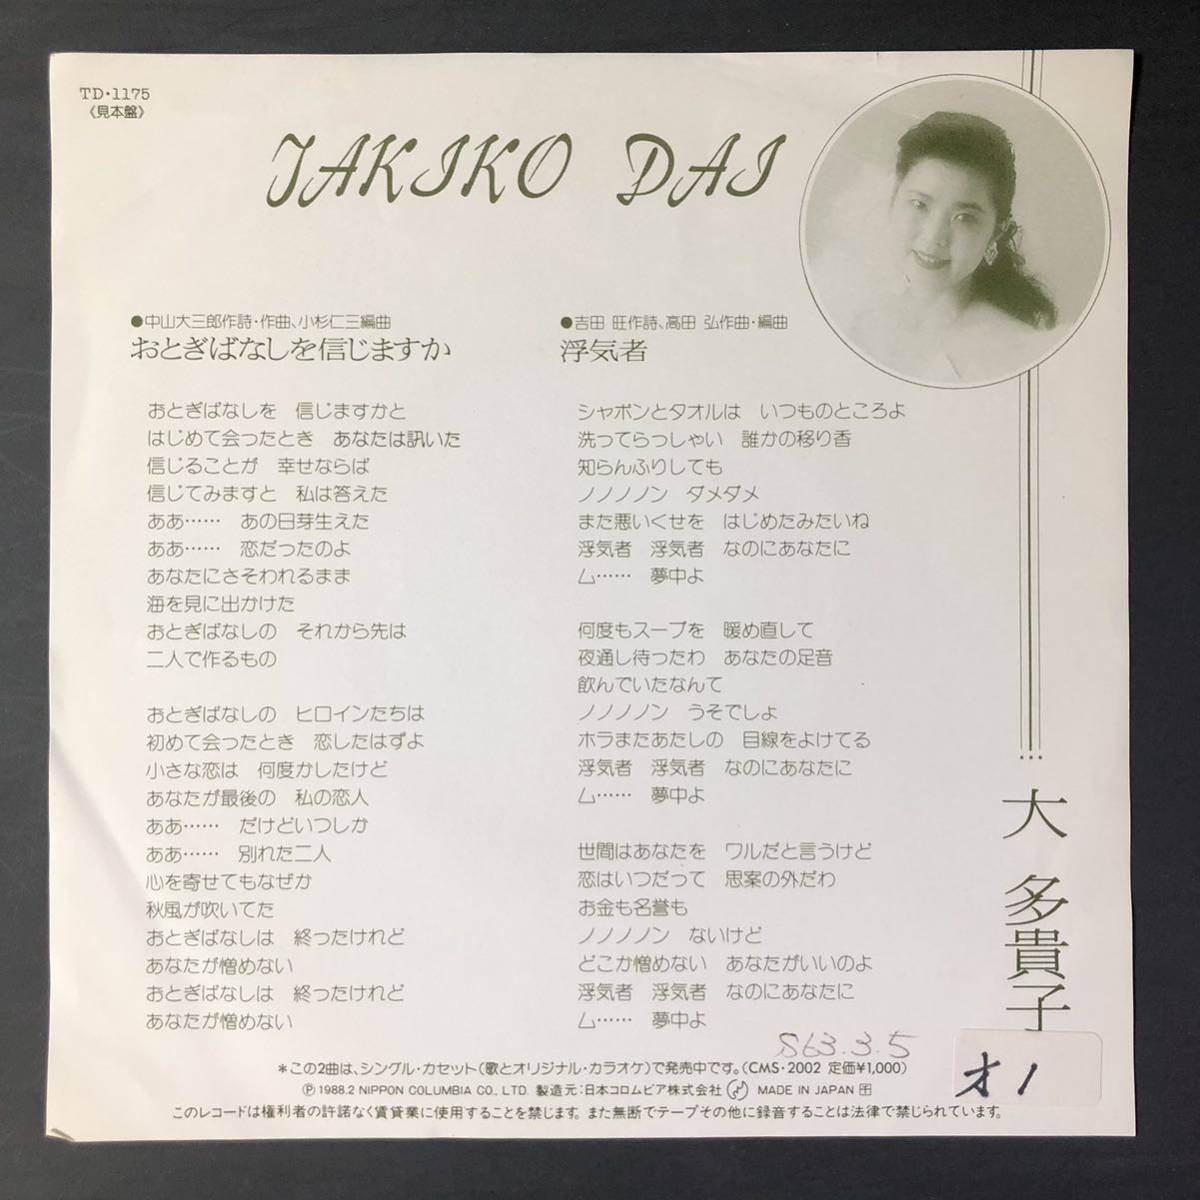 TD・1175
《見本盤》
TAKIKO DAI
●中山大三郎作詩・作曲、小杉仁三編曲
おとぎばなしを信じますか
おとぎばなしを 信じますかと
はじめて会ったとき あなたは訊いた
信じることが 幸せならば
信じてみますと 私は答えた
ああ…… あの日芽生えた
ああ…… 恋だったのよ
あなたにさそわれるまま
海を見に出かけた
おとぎばなしの それから先は
二人で作るもの
おとぎばなしの ヒロインたちは
初めて会ったとき 恋したはずよ
小さな恋は 何度かしたけど
あなたが最後の 私の恋人
ああ…… だけどいつしか
ああ…… 別れた二人
心を寄せてもなぜか
秋風が吹いてた
おとぎばなしは 終ったけれど
あなたが憎めない
おとぎばなしは 終ったけれど
あなたが憎めない
●吉田 旺作詩、高田 弘作曲・編曲
浮気者
シャボンとタオルは いつものところよ
洗ってらっしゃい 誰かの移り香
知らんふりしても
ノノノノン ダメダメ
また悪いくせを はじめたみたいね
浮気者 浮気者 なのにあなたに
ム…… 夢中よ
何度もスープを 暖め直して
夜通し待ったわ あなたの足音
飲んでいたなんて
ノノノノン うそでしょ
ホラまたあたしの 目線をよけてる
浮気者 浮気者 なのにあなたに
ム…… 夢中よ
世間はあなたを ワルだと言うけど
恋はいつだって 思案の外だわ
お金も名誉も
ノノノノン ないけど
どこか憎めない あなたがいいのよ
浮気者 浮気者 なのにあなたに
ム…… 夢中よ
大 多貴子
S63.3.5
オ1
＊この2曲は、シングル・カセット(歌とオリジナル・カラオケ)で発売中です。(CMS・2002 定価¥1,000)
Ⓟ1988.2 NIPPON COLUMBIA CO., LTD. 製造元:日本コロムビア株式会社 MADE IN JAPAN
このレコードは権利者の許諾なく賃貸業に使用することを禁じます。また無断でテープその他に録音することは法律で禁じられています。